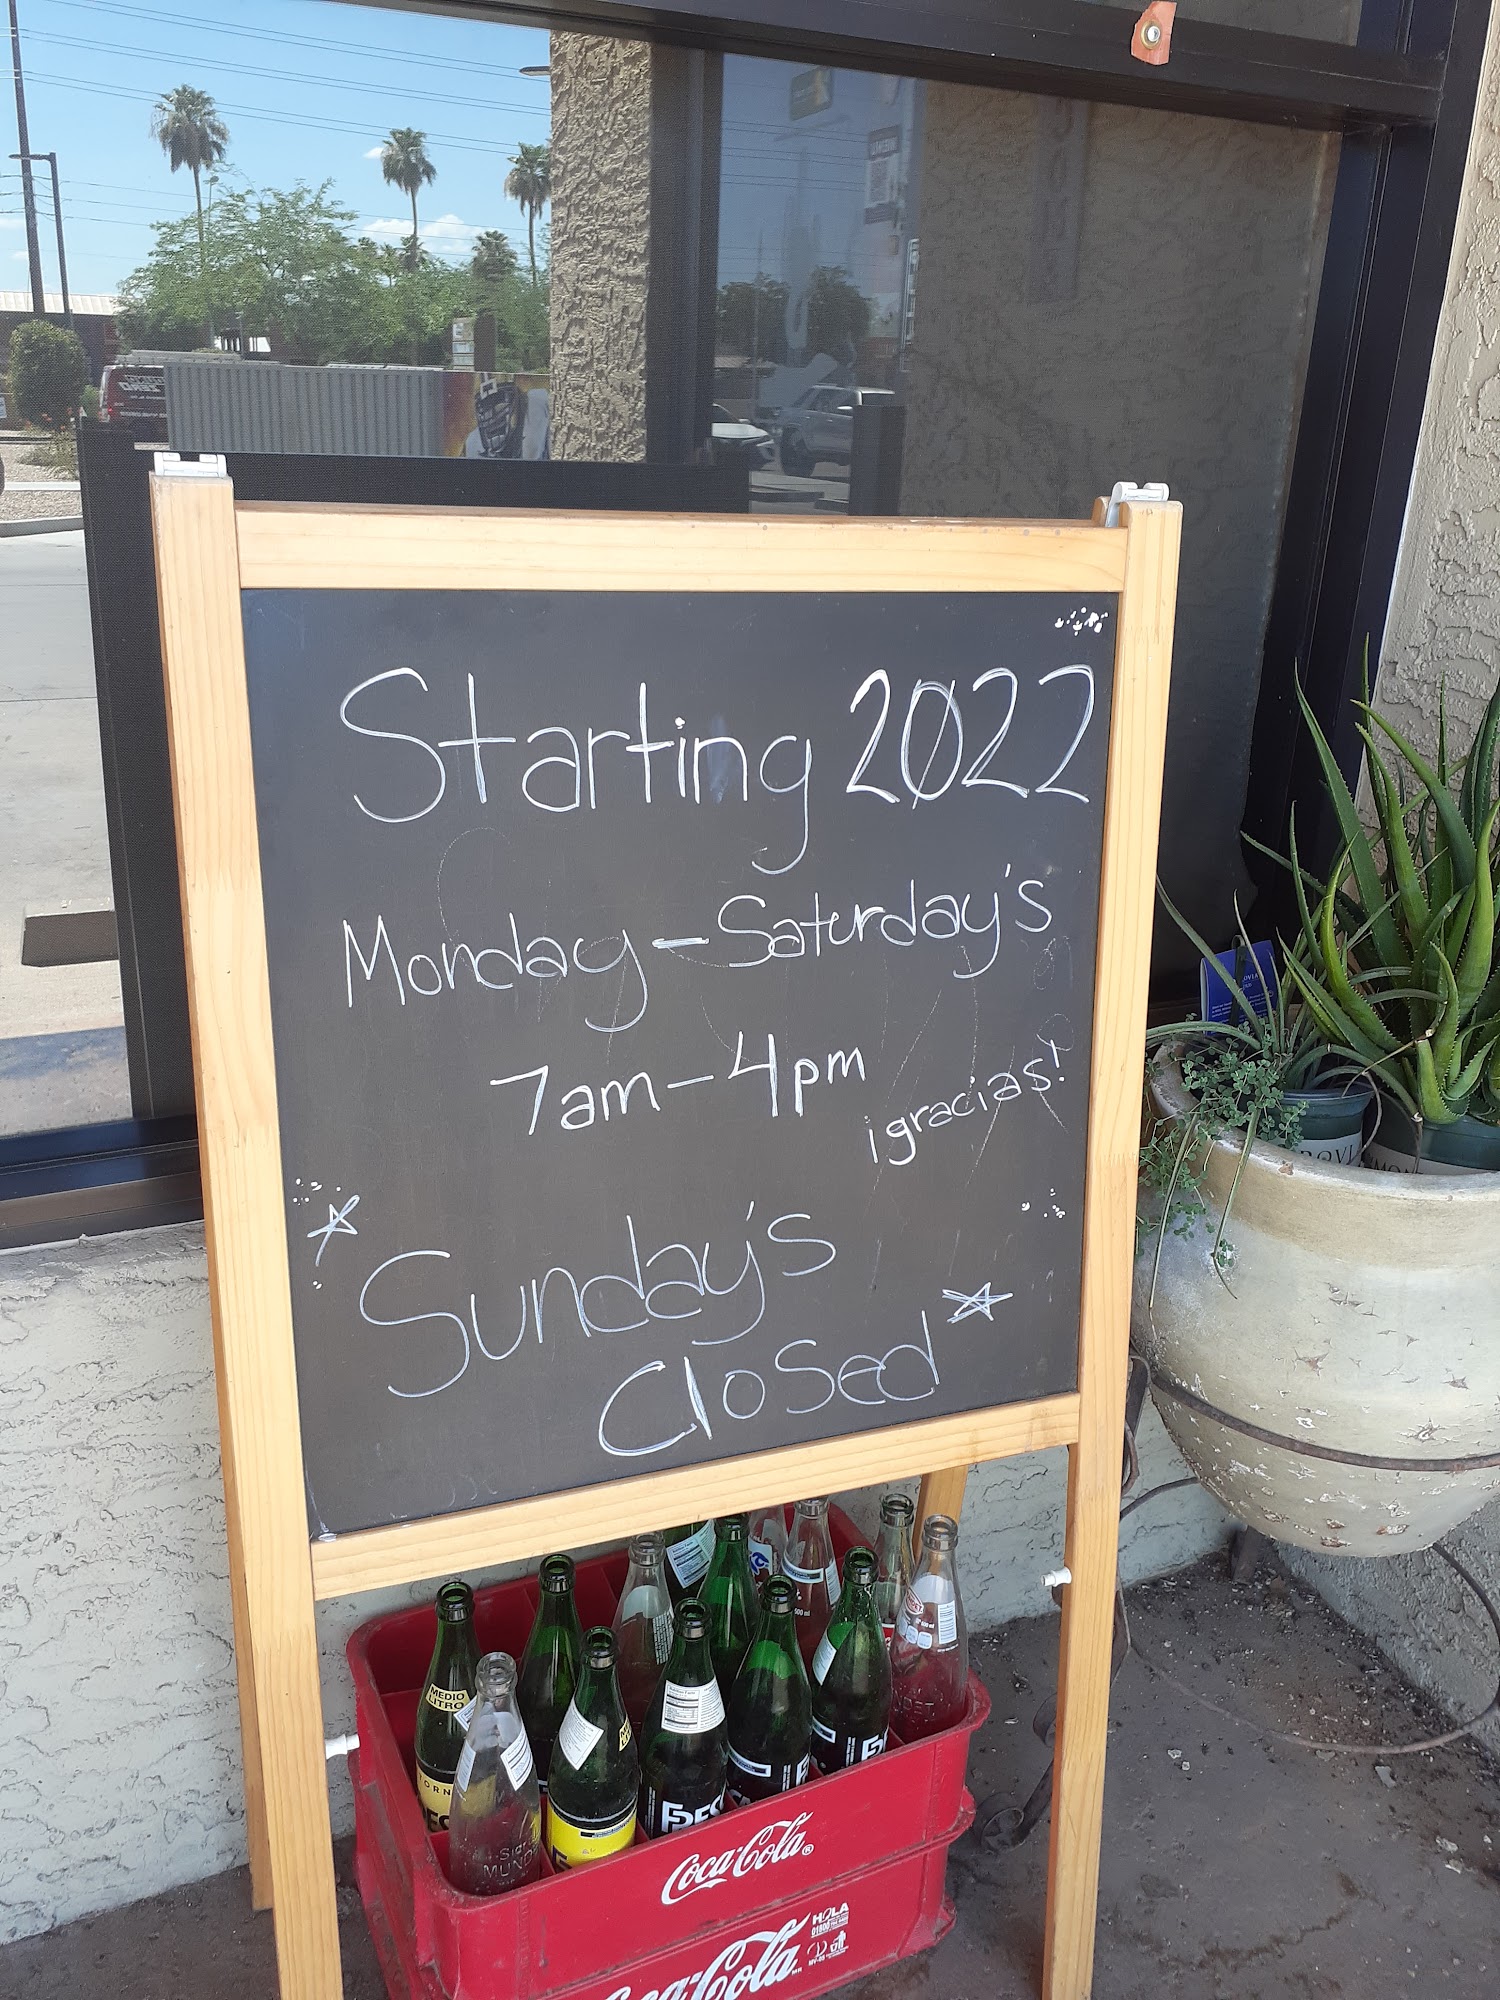 Starting 2022
Monday - Saturday's
7am - 4pm
¡gracias!
Sunday's
Closed
MEDIO
LITRO
Coca-Cola®
HOLA
Coca-Cola